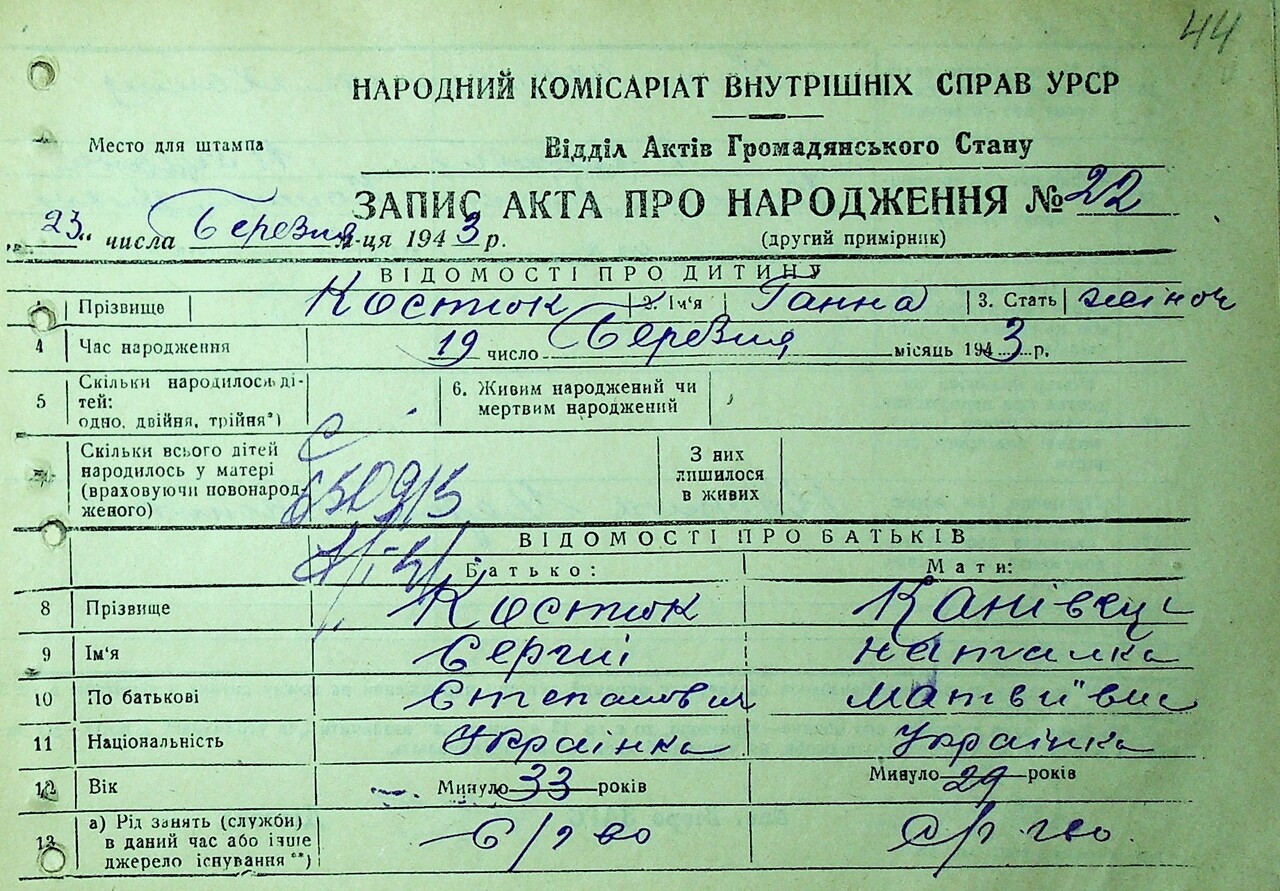 44
НАРОДНИЙ КОМІСАРІАТ ВНУТРІШНІХ СПРАВ УРСР
Место для штампа
Відділ Актів Громадянського Стану
ЗАПИС АКТА ПРО НАРОДЖЕННЯ № 22
„23“ числа Березня м-ця 1943 р.
(другий примірник)
ВІДОМОСТІ ПРО ДИТИНУ
1 Прізвище Костюк 2. Ім'я Ганна 3. Стать жіноч
4 Час народження 19 число Березня місяць 1943 р.
5 Скільки народилось дітей: одно, двійня, трійня*) 6. Живим народжений чи мертвим народжений
Скільки всього дітей народилось у матері (враховуючи новонародженого) З них лишилося в живих
ВІДОМОСТІ ПРО БАТЬКІВ
Батько: Мати:
8 Прізвище Костюк Канівець
9 Ім'я Сергій Наталка
10 По батькові Степанович Матвиївна
11 Національність Українка Українка
12 Вік Минуло 33 років Минуло 29 років
13 а) Рід занять (служби) в даний час або інше джерело існування**) с/г-во с/г-во